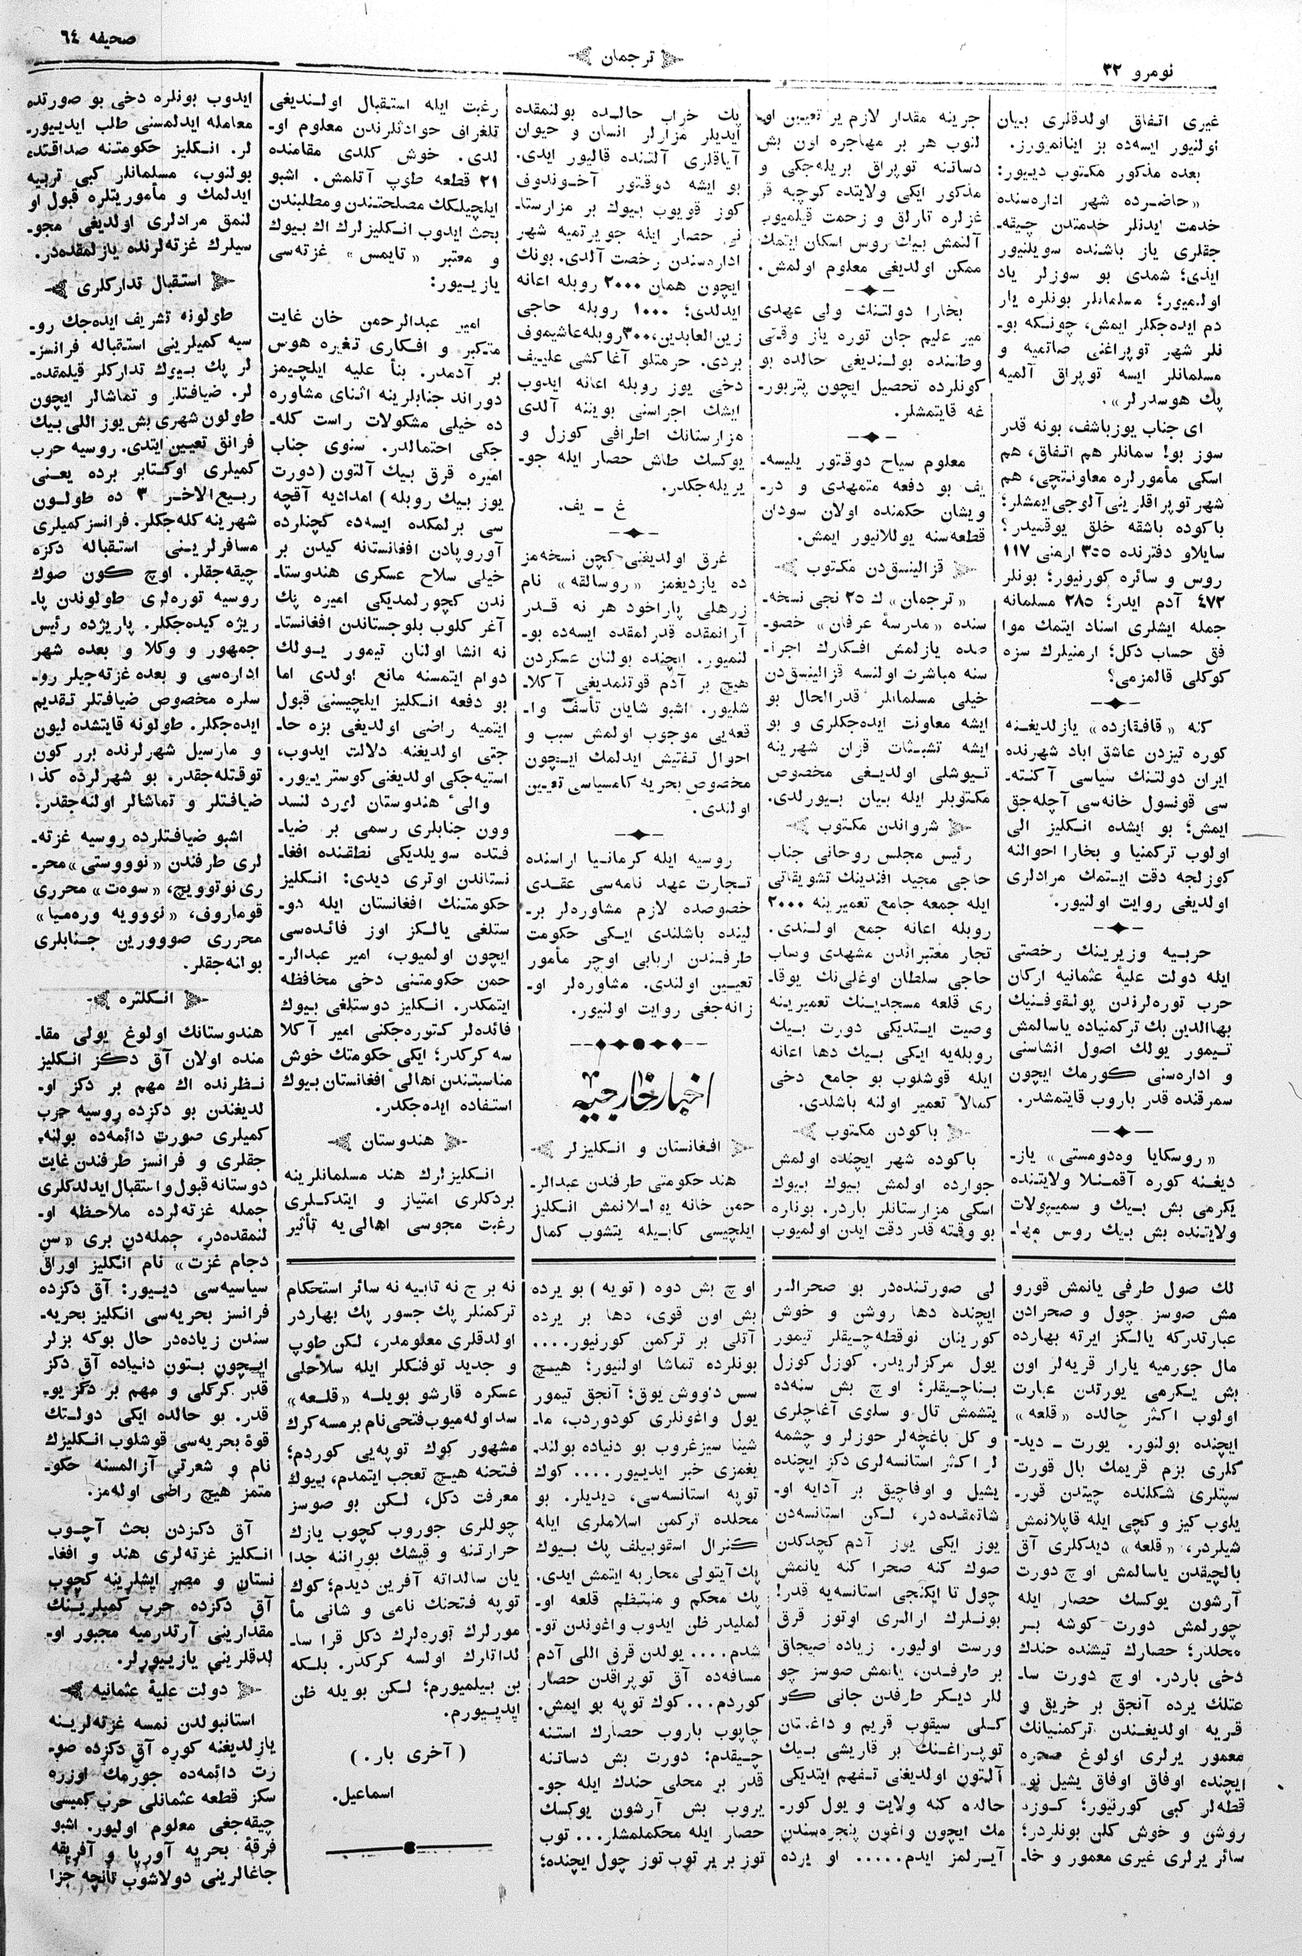 نومرو ٣٢
ترجمان
صحيفه ٦٤
غيری اتفاق اولدقلری بيان
اولنيور ايسه‌ده بز اينانميورز.
بعده مذكور مكتوب ديیور:
«حاضرده شهر اداره‌سنده
خدمت ايدنلر خدمتدن چيقه‌ـ
جقلری ياز باشنده سويلنيور
ايدی؛ شمدی بو سوزلر ياد
اولميور؛ مسلمانلر بونلره يار
دم ايده‌جكلر ايمش، چونكه بوـ
نلر شهر توپراغنی صاتميه و
مسلمانلر ايسه توپراق آلميه
پك هوسدرلر».
ای جناب يوزباشف، بونه قدر
سوز بو! سمانلر هم اتفاق، هم
اسكی مأمورلره معاونتچی، هم
شهر توپراقلرينی آلوجی ايمشلر؛
باكوده باشقه خلق يوقميدر؟
سايلاو دفترنده ٣٥٥ ارمنی ١١٧
روس و سائره كورنيور؛ بونلر
٤٧٢ آدم ايدر؛ ٢٨٥ مسلمانه
جمله ايشلری اسناد ايتمك موا
فق حساب دكل؛ ارمنيلرك سزه
كوكلی قالمزمی؟
كنه «قافقازده» يازلديغنه
كوره تيزدن عاشق اباد شهرنده
ايران دولتنك سياسی آكنته‌ـ
سی قونسول خانه‌سی آچله‌جق
ايمش؛ بو ايشده انكليز الی
اولوب تركمنيا و بخارا احوالنه
كوزلجه دقت ايتمك مرادلری
اولديغی روايت اولنيور.
حربيه وزيرينك رخصتی
ايله دولت عليهٔ عثمانيه اركان
حرب توره‌لرندن پولقوفنيك
بهاالدين بك تركمنياده ياسالمش
تيمور يولك اصول انشاسنی
و اداره‌سنی كورمك ايچون
سمرقنده قدر باروب قايتمشدر.
«روسكايا وه‌دومستی» يازـ
ديغنه كوره آقمنلا ولايتنده
يكرمی بش بيك و سميپولات
ولايتنده بش بيك روس مهاـ
جرينه مقدار لازم ير تعيين اوـ
لنوب هر بر مهاجره اون بش
دساتنه توپراق بريله‌جكی و
مذكور ايكی ولايتده كوچبه قرـ
غزلره تارلق و زحمت قيلميوب
آلتمش بيك روس اسكان ايتمك
ممكن اولديغی معلوم اولمش.
بخارا دولتنك ولی عهدی
مير عليم جان توره ياز وقتی
وطننده بولنديغی حالده بو
كونلرده تحصيل ايچون پتربورـ
غه قايتمشلر.
معلوم سياح دوقتور يليسه‌ـ
يف بو دفعه متمهدی و درـ
ويشان حكمنده اولان سودان
قطعه‌سنه يوللانيور ايمش.
قزالينسق‌دن مكتوب
«ترجمان» ك ٢٥ نجی نسخه‌ـ
سنده «مدرسهٔ عرفان» خصوـ
صده يازلمش افكارك اجراـ
سنه مباشرت اولنسه قزالينسق‌دن
خيلی مسلمانلر قدرالحال بو
ايشه معاونت ايده‌جكلری و بو
ايشه تشبثات قزان شهرينه
تيوشلی اولديغی مخصوص
مكتوبلر ايله بيان بيورلدی.
شرواندن مكتوب
رئيس مجلس روحانی جناب
حاجی مجيد افندينك تشويقاتی
ايله جمعه جامع تعميرينه ٢٠٠٠
روبله اعانه جمع اولندی.
تجار معتبراندن مشهدی وساب
حاجی سلطان اوغلی‌نك يوقاـ
ری قلعه مسجدينك تعميرينه
وصيت ايتديكی دورت بيك
روبله‌يه ايكی بيك دها اعانه
ايله قوشلوب بو جامع دخی
كمالاً تعمير اولنه باشلدی.
باكودن مكتوب
باكوده شهر ايچنده اولمش
جوارده اولمش بيوك بيوك
اسكی مزارستانلر باردر. بوناره
بو وقته قدر دقت ايدن اولميوب
پك خراب حالده بولنمقده
ايديلر مزارلر انسان و حيوان
آياقلری آلتنده قاليور ايدی.
بو ايشه دوقتور آخوندوف
كوز قويوب بيوك بر مزارستاـ
نی حصار ايله جويرتميه شهر
اداره‌سندن رخصت آلدی. بونك
ايچون همان ٢٠٠٠ روبله اعانه
ايدلدی؛ ١٠٠٠ روبله حاجی
زين‌العابدين، ٣٠٠ روبله عاشيموف
بردی. حرمتلو آغا كشی علييف
دخی يوز روبله اعانه ايدوب
ايشك اجراسنی بويننه آلدی
مزارستانك اطرافی كوزل و
يوكسك طاش حصار ايله جوـ
يريله‌جكدر.
غ ـ يف.
غرق اولديغنی كچن نسخه‌مز
ده يازديغمز «روسالقه» نام
زرهلی پاراخود هر نه قدر
آرانمقده قدرلمقده ايسه‌ده بوـ
لنميور. ايچنده بولنان عسكردن
هيچ بر آدم قوتلمديغی آكلاـ
شليور. اشبو شايان تأسف واـ
قعه‌يی موجوب اولمش سبب و
احوال تفتيش ايدلمك ايچون
مخصوص بحريه كامسياسی تعيين
اولندی.
روسيه ايله كرمانيا اراسنده
تجارت عهد نامه‌سی عقدی
خصوصده لازم مشاوره‌لر برـ
لينده باشلندی ايكی حكومت
طرفندن اربابی اوچر مأمور
تعيين اولندی. مشاوره‌لر اوـ
زانه‌جغی روايت اولنيور.
اخبار خارجيه
افغانستان و انكليزلر
هند حكومتی طرفندن عبدالرـ
حمن خانه يوللانمش انكليز
ايلچيسی كابيله يتشوب كمال
رغبت ايله استقبال اولنديغی
تلغرافی حوادثلرندن معلوم اوـ
لدی. خوش كلدی مقامنده
٢١ قطعه طوپ آتلمش. اشبو
ايلچيلكك مصلحتندن و مطلبندن
بحث ايدوب انكليزلرك اك بيوك
و معتبر «تايمس» غزته‌سی
يازيیور:
امير عبدالرحمن خان غايت
متكبر و افكاری تغيره هوس
بر آدمدر. بنأ عليه ايلچيمز
دوراند جنابلرينه اثنای مشاوره
ده خيلی مشكولات راست كله‌ـ
جكی احتمالدر. سنوی جناب
اميره قرق بيك آلتون (دورت
يوز بيك روبله) امداديه آقچه
سی برلمكده ايسه‌ده كچنلرده
آوروپادن افغانستانه كيدن بر
خيلی سلاح عسكری هندوستاـ
ندن كچورلمديكی اميره پك
آغر كلوب بلوجستاندن افغانستاـ
نه انشا اولنان تيمور يولك
دوام ايتمسنه مانع اولدی اما
بو دفعه انكليز ايلچيسنی قبول
ايتميه راضی اولديغی بزه حاـ
جتی اولديغنه دلالت ايدوب،
استيه‌جكی اولديغنی كوستريیور.
والیٔ هندوستان لورد لنسد
وون جنابلری رسمی بر ضياـ
فتده سويلديكی نطقنده افغاـ
نستاندن اوتری ديدی: انكليز
حكومتنك افغانستان ايله دوـ
ستلغی يالكز اوز فائده‌سی
ايچون اولميوب، امير عبدالرـ
حمن حكومتنی دخی محافظه
ايتمكدر. انكليز دوستلغی بيوك
فائده‌لر كتوره‌جكنی امير آكلا
سه كركدر؛ ايكی حكومتك خوش
مناسبتندن اهالیٔ افغانستان بيوك
استفاده ايده‌جكدر.
هندوستان
انكليزلرك هند مسلمانلرينه
بردكلری امتياز و ايتدكلری
رغبت مجوسی اهالی‌يه تأثير
ايدوب بونلره دخی بو صورتده
معامله ايدلمسنی طلب ايديیورـ
لر. انكليز حكومتنه صداقتده
بولنوب، مسلمانلر كبی تربيه
ايدلمك و مأموريتلره قبول او
لنمق مرادلری اولديغی مجوـ
سيلرك غزته‌لرنده يازلمقده‌در.
استقبال تداركلری
طولونه تشريف ايده‌جك روـ
سيه كميلرينی استقباله فرانسزـ
لر پك بيوك تداركلر قيلمقده‌ـ
لر. ضيافتلر و تماشالر ايچون
طولون شهری بش يوز اللی بيك
فرانق تعيين ايتدی. روسيه حرب
كميلری اوكتابر برده يعنی
ربيع‌الاخر ٣ ده طولون
شهرينه كله‌جكلر. فرانسز كميلری
مسافرلرينی استقباله دكزه
چيقه‌جقلر. اوچ كون صوك
روسيه توره‌لری طولوندن پاـ
ريژه كيده‌جكلر. پاريژده رئيس
جمهور و وكلا و بعده شهر
اداره‌سی و بعده غزته‌جيلر روـ
سلره مخصوص ضيافتلر تقديم
ايده‌جكلر. طولونه قايتشده ليون
و مارسيل شهرلرنده برر كون
توقتله‌جقدر. بو شهرلرده كذا
ضيافتلر و تماشالر اولنه‌جقدر.
اشبو ضيافتلرده روسيه غزته‌ـ
لری طرفندن «نووستی» محرـ
ری نوتوويچ، «سوه‌ت» محرری
قوماروف، «نوويه وره‌ميا»
محرری صووورين جنابلری
بوانه‌جقلر.
انكلتره
هندوستانك اولوغ يولی مقاـ
منده اولان آق دكز انكليز
نظرنده اك مهم بر دكز اوـ
لديغندن بو دكزده روسيه حرب
كميلری صورت دائمه‌ده بولنه‌ـ
جقلری و فرانسز طرفندن غايت
دوستانه قبول و استقبال ايدلدكلری
جمله غزته‌لرده ملاحظه اوـ
لنمقده‌در، جمله‌دن بری «سن
دجام غزت» نام انكليز اوراق
سياسيه‌سی ديیور: آق دكزده
فرانسز بحريه‌سی انكليز بحريه‌ـ
سندن زياده‌در حال بوكه بزلر
ايچون بتون دنياده آق دكز
قدر كركلی و مهم بر دكز يوـ
قدر. بو حالده ايكی دولتك
قوهٔ بحريه‌سی قوشلوب انكليزك
نام و شعرتی آزالمسنه حكوـ
متمز هيچ راضی اوله‌مز.
آق دكزدن بحث آچوب
انكليز غزته‌لری هند و افغاـ
نستان و مصر ايشلرينه كچوب
آق دكزده حرب كميلرينك
مقدارينی آرتدرميه مجبور اوـ
لدقلرينی يازيیورلر.
دولت عليهٔ عثمانيه
استانبولدن نمسه غزته‌لرينه
يازلديغنه كوره آق دكزده صوـ
رت دائمه‌ده جورمك اوزره
سكز قطعه عثمانلی حرب كميسی
چيقه‌جغی معلوم اوليور. اشبو
فرقهٔ بحريه آورپا و آفريقه
جاغالرينی دولاشوب تانچه جزا
لك صول طرفی يانمش قورو
مش صوسز چول و صحرادن
عبارتدركه يالكز ايرته بهارده
مال جورميه يارار قريه‌لر اون
بش يكرمی يورتدن عبارت
اولوب اكثر حالده «قلعه»
ايچنده بولنور. يورت ـ ديدـ
كلری بزم قريمك بال قورت
سپتلری شكلنده چيتدن قورـ
يلوب كيز و كچی ايله قاپلانمش
شيلردر، «قلعه» ديدكلری آق
بالچيقدن ياسالمش اوچ دورت
آرشون يوكسك حصار ايله
جورلمش دورت كوشه بر
محلدر؛ حصارك تيشنده حندك
دخی باردر. اوچ دورت ساـ
عتلك يرده آنجق بر خريق و
قريه اولديغندن تركمنيانك
معمور يرلری اولوغ صحره
ايچنده اوفاق اوفاق يشيل نوـ
قطه‌لر كبی كورنيور؛ كوزد
روشن و خوش كلن بونلردر؛
سائر يرلری غيری معمور و خاـ
لی صورتنده‌در بو صحرالر
ايچنده دها روشن و خوش
كورينان نوقطه‌چيقلر تيمور
يول مركزلريدر. كوزل كوزل
بناچيقلر؛ اوچ بش سنه‌ده
يتشمش تال و سلوی آغاچلری
و كل باغچه‌لر حوزلر و چشمه
لر اكثر استانسه‌لری دكز ايچنده
يشيل و اوفاچيق بر آدايه اوـ
شاتمقده‌در، لكن استانسه‌دن
يوز ايكی يوز آدم كچدكدن
صوك كنه صحرا كنه يانمش
چول تا ايكنجی استانسه‌يه قدر!
بونلرك ارالری اوتوز قرق
ورست اوليور. زياده صيجاق
بر طرفدن، يانمش صوسز چو
للر ديكر طرفدن جانی كو
كلی سيقوب قريم و داغستان
توپراغنك بر قاريشی بيك
آلتون اولديغی تفهم ايتديكی
حالده كنه ولايت و يول كورـ
مك ايچون واغون پنجره‌سندن
آيرلمز ايدم..... او يرده
اوچ بش دوه (تويه) بو يرده
بش اون قوی، دها بر يرده
آتلی بر تركمن كورنيور....
بونلرده تماشا اولنيور؛ هيچ
سس داووش يوق؛ آنجق تيمور
يول واغونلری كودوردب، ماـ
شينا سيزغروب بو دنياده بولندـ
يغمزی خبر ايديیور.... كوك
توپه استانسه‌سی، ديديلر. بو
محلده تركمن اسلاملری ايله
كنرال اسقوبيلف پك بيوك
پك آيتولی محاربه ايتمش ايدی.
پك محكم و منتظم قلعه اوـ
لمليدر ظن ايدوب واغوندن توـ
شدم.... يولدن قرق اللی آدم
مسافه‌ده آق توپراقدن حصار
كوردم... كوك توپه بو ايمش.
چاپوب باروب حصارك استنه
چيقدم: دورت بش دساتنه
قدر بر محلی حندك ايله جوـ
يروب بش آرشون يوكسك
حصار ايله محكملمشلر... توب
توز بر ير توب توز چول ايچنده؛
نه برج نه تابيه نه سائر استحكام
تركمنلر پك جسور پك بهاردر
اولدقلری معلومدر، لكن طوپ
و جديد توفنكلر ايله سلاحلی
عسكره قارشو بويله «قلعه»
سد اوله‌ميوب فتحی نام برمسه كرك
مشهور كوك توپه‌يی كوردم؛
فتحنه هيچ تعجب ايتمدم، بيوك
معرفت دكل، لكن بو صوسز
چوللری جوروب كچوب يازك
حرارتنه و قيشك بوراننه جدا
يان سالداته آفرين ديدم؛ كوك
توپه فتحنك نامی و شانی مأ
مورلرك توره‌لرك دكل قرا ساـ
لداتارك اولسه كركدر. بلكه
بن بيلميورم؛ لكن بويله ظن
ايديیورم.
(آخری بار.)
اسماعيل.